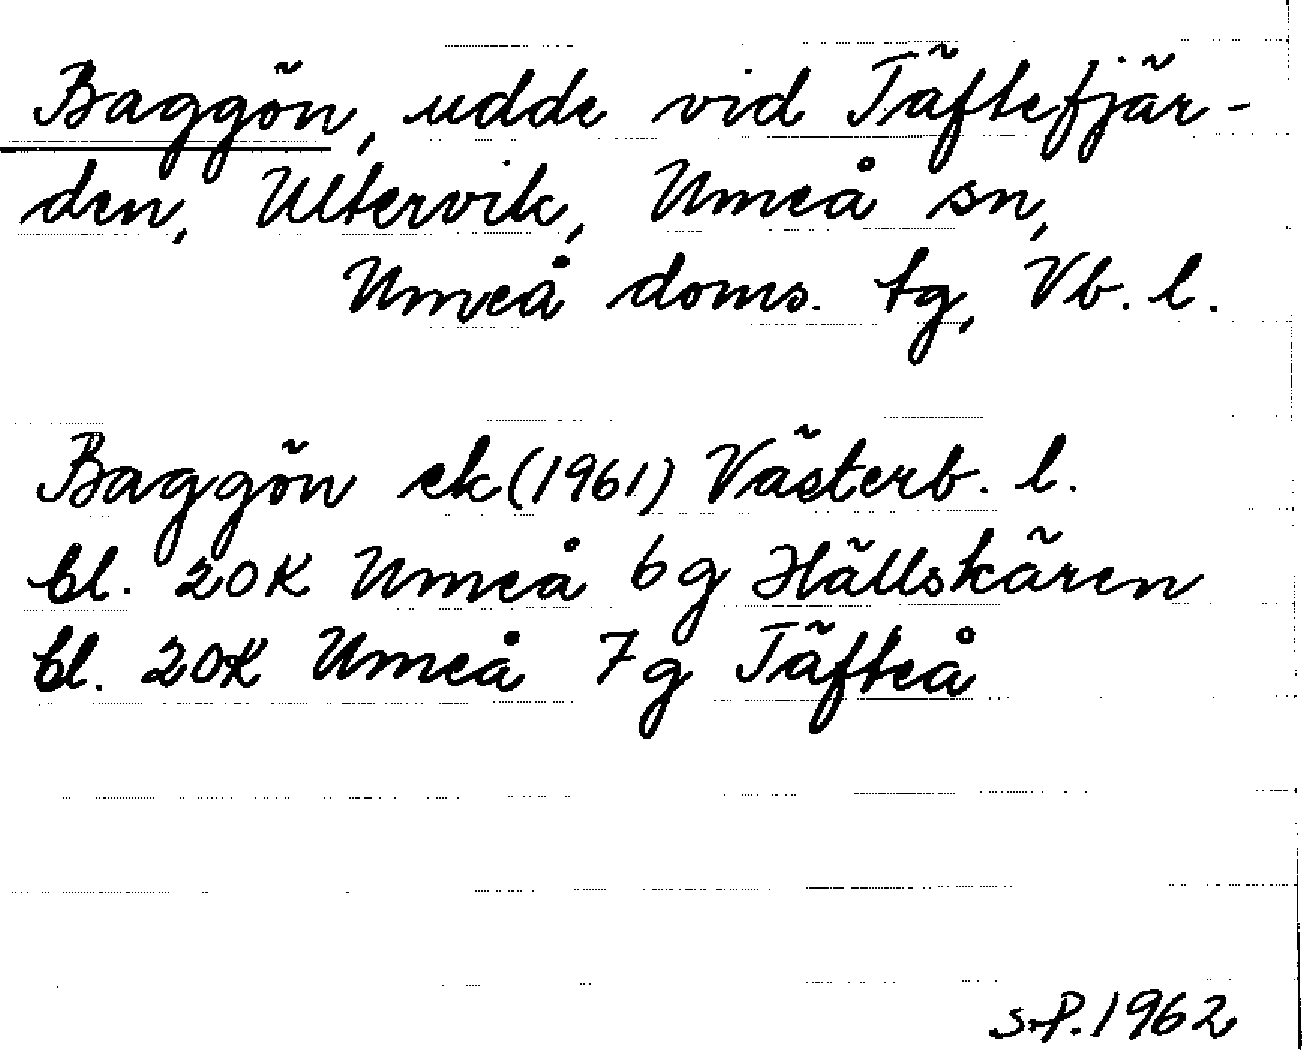 Baggön, udde vid Täftefjär-
den, Ultervik, Umeå sn,
Umeå doms. tg, Vb. l.
Baggön ek (1961) Västerb. l.
bl. 20K Umeå 6g Hällskären
bl. 20K Umeå 7g Täfteå
S.P. 1962